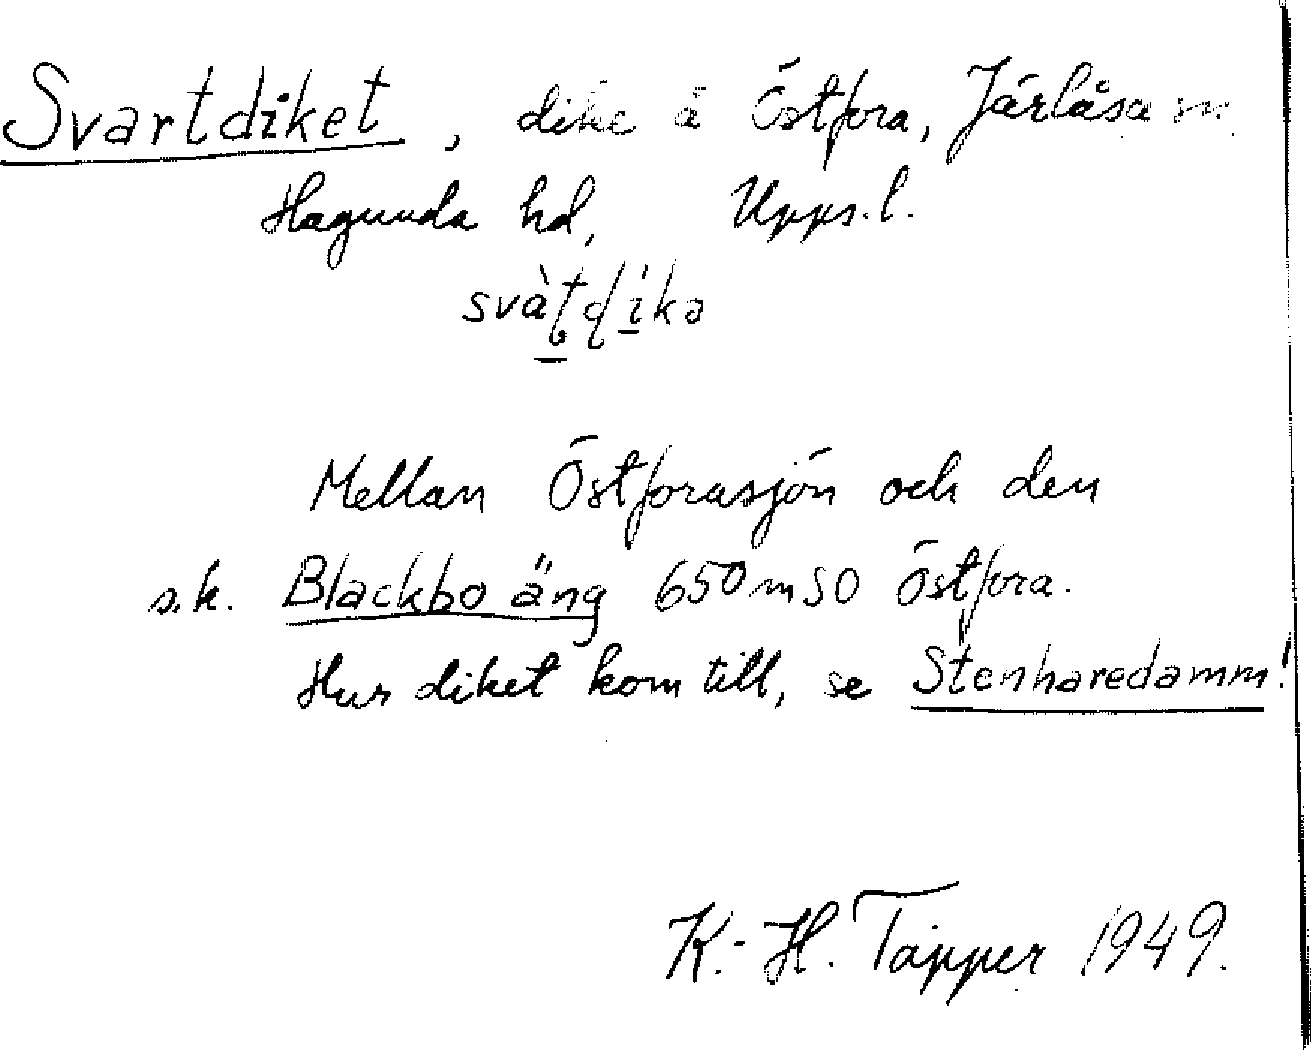 Svartdiket, dike å Östfora, Järlåsa sn
Hagunda hd, Upps.l.
Mellan Östforasjön och den
s.k. Blackbo äng 650 m SO Östfora.
Hur diket kom till, se Stenharedamm!
K.-H. Tapper 1949.